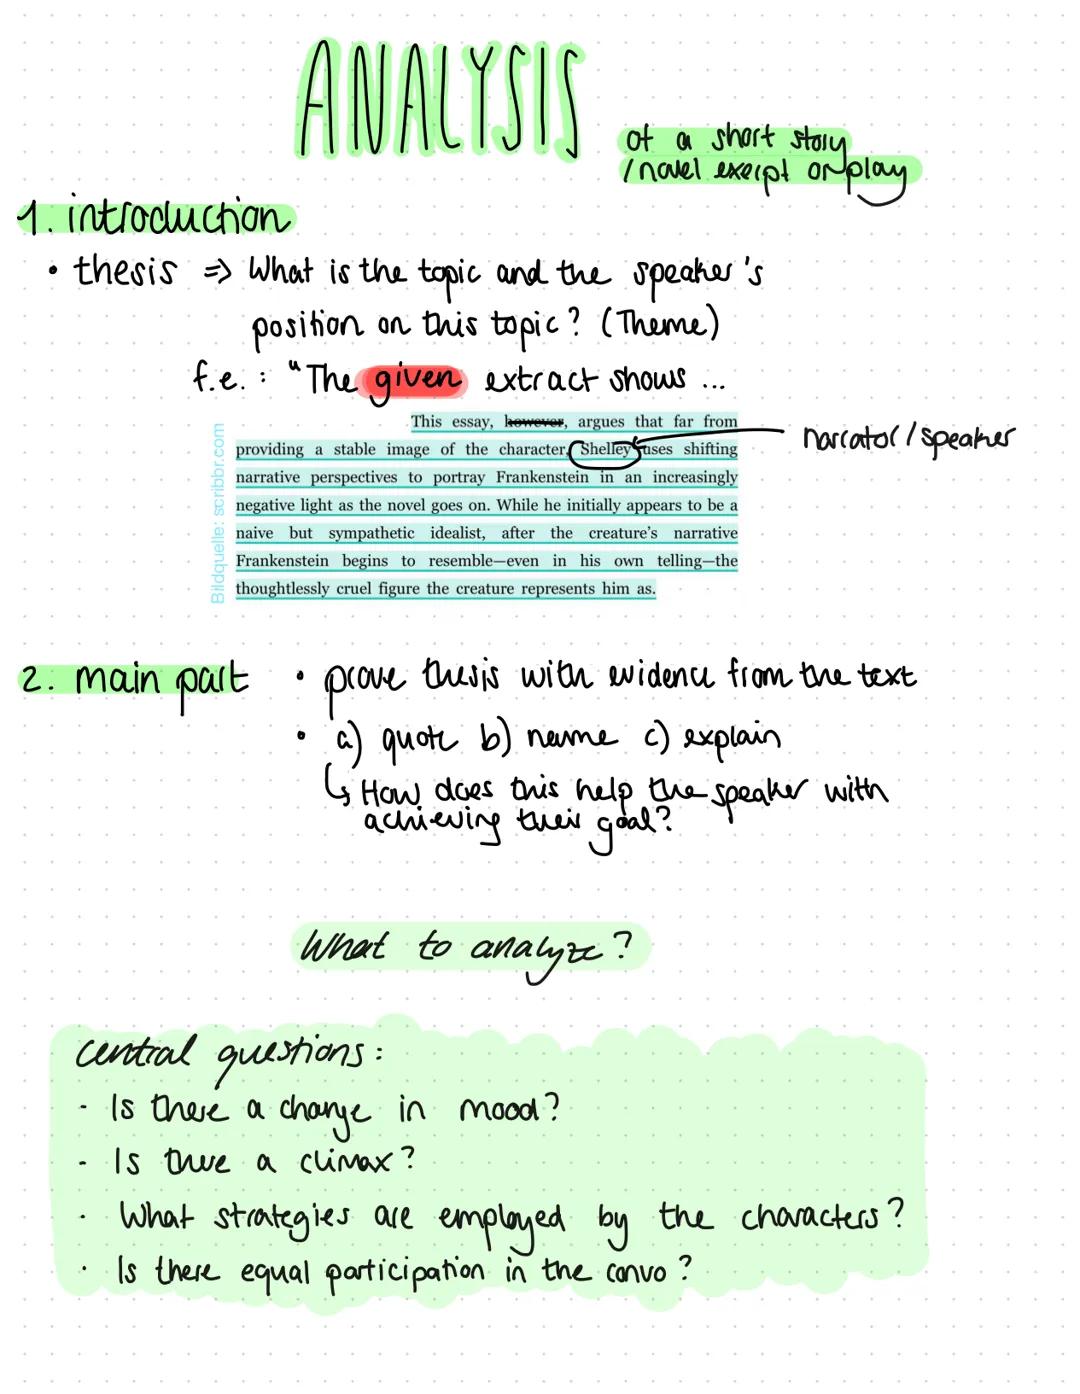 ANALYSIS
of a short story
/novel exerpt or play
1. introduction
• thesis => What is the topic and the speaker's
position on this topic? (Theme)
f.e.: "The given extract shows ...
This essay, however, argues that far from
providing a stable image of the character, Shelley uses shifting
narrative perspectives to portray Frankenstein in an increasingly
negative light as the novel goes on. While he initially appears to be a
naive but sympathetic idealist, after the creature's narrative
Frankenstein begins to resemble—even in his own telling—the
thoughtlessly cruel figure the creature represents him as.
narrator/speaker
Bildquelle: scribbr.com
2. main part
• prove thesis with evidence from the text
• a) quote b) name c) explain
↳ How does this help the speaker with
achieving their goal?
What to analyze?
central questions:
- Is there a change in mood?
- Is there a climax?
· What strategies are employed by the characters?
· Is there equal participation in the convo?